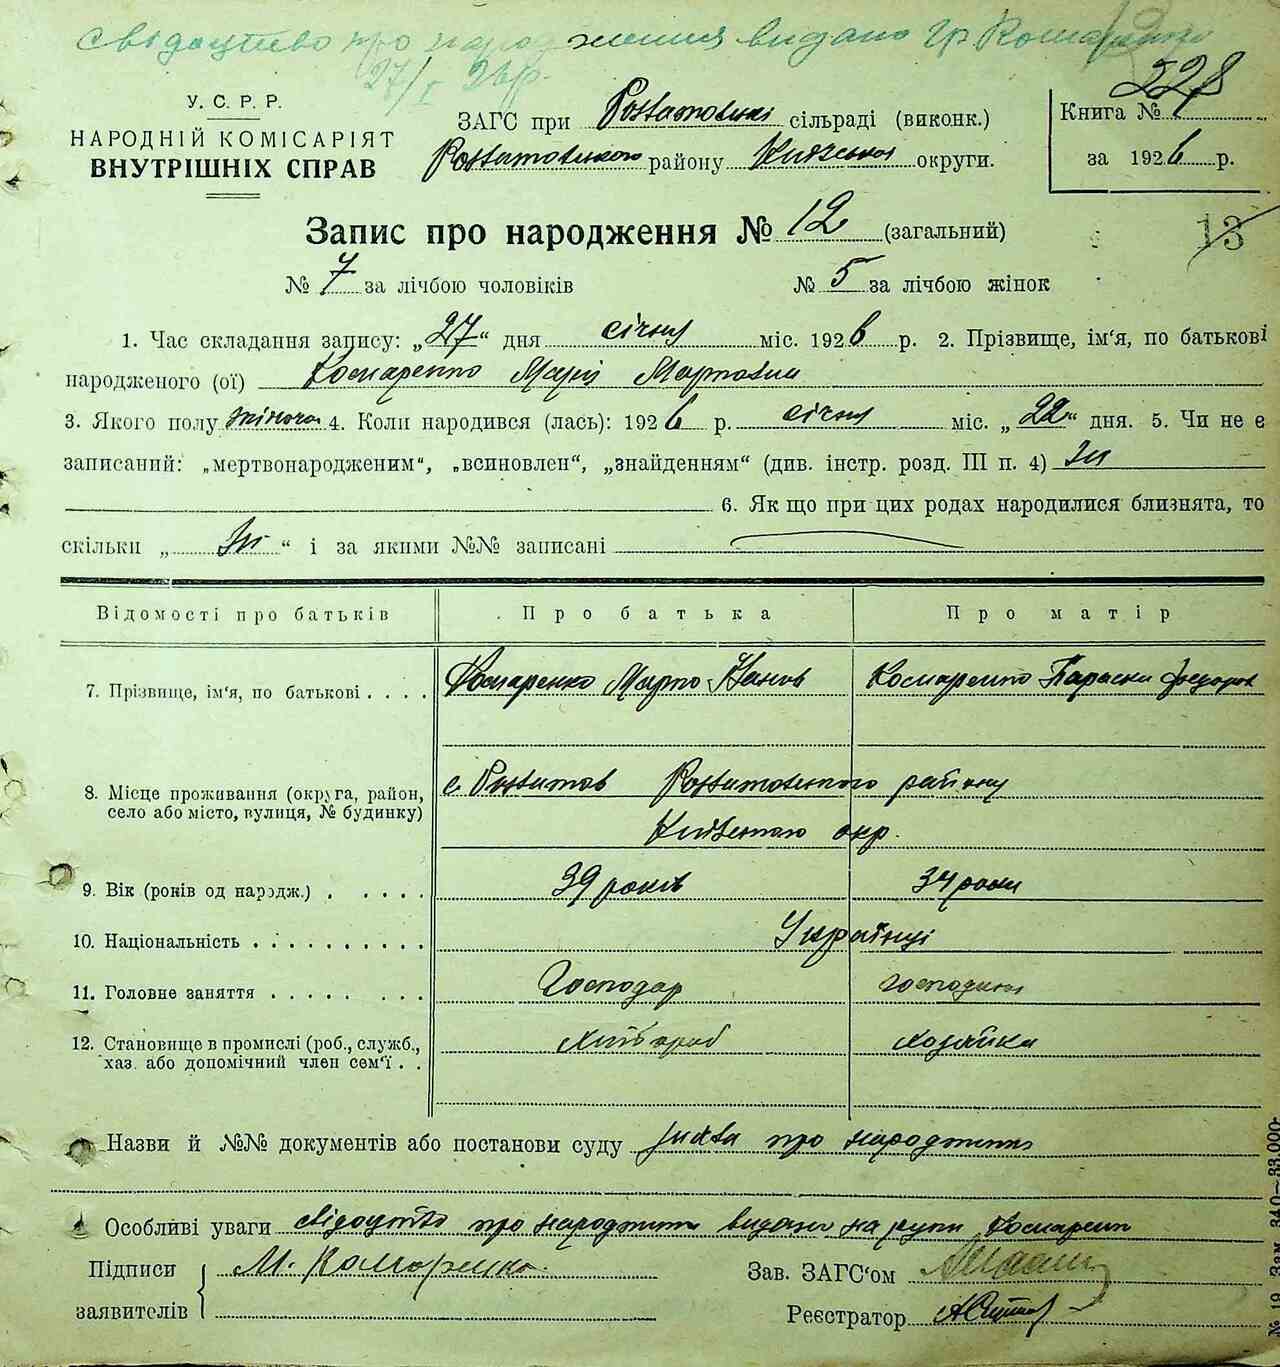 Свідоцтво про народження видано гр. Комаренко
27/I 26 р.
У. С. Р. Р.
НАРОДНІЙ КОМІСАРІЯТ
ВНУТРІШНІХ СПРАВ
ЗАГС при сільраді (виконк.)
району Київської округи.
Книга № 228
за 1926 р.
Запис про народження № 12 (загальний)
13
№ 7 за лічбою чоловіків № 5 за лічбою жінок
1. Час складання запису: „27“ дня січня міс. 1926 р. 2. Прізвище, ім'я, по батькові
народженого (ої) Комаренко Марія Марковна
3. Якого полу жіноча 4. Коли народився (лась): 1926 р. січня міс. „22“ дня. 5. Чи не є
записаний: „мертвонародженим“, „всиновлен“, „знайденням“ (див. інстр. розд. III п. 4) Ні
6. Як що при цих родах народилися близнята, то
скільки „ Ні “ і за якими №№ записані
Відомості про батьків Про батька Про матір
7. Прізвище, ім'я, по батькові . . . . Комаренко Марко Іванов Комаренко Параска Федоров
8. Місце проживання (округа, район,
село або місто, вулиця, № будинку)
с. району
окр.
9. Вік (років од народж.) . . . . . 39 років 34 роки
10. Національність . . . . . . . . . . Українці
11. Головне заняття . . . . . . . . Господар господиня
12. Становище в промислі (роб., служб.,
хаз. або допомічний член сем'ї . . Хлібороб хозяйка
Назви й №№ документів або постанови суду про народження
Особливі уваги свідоцтво про народження видано на руки Комаренк
Підписи
заявителів
М. Комаренко.
Зав. ЗАГС'ом
Реєстратор
№ 19. Зам. 340—33.000-